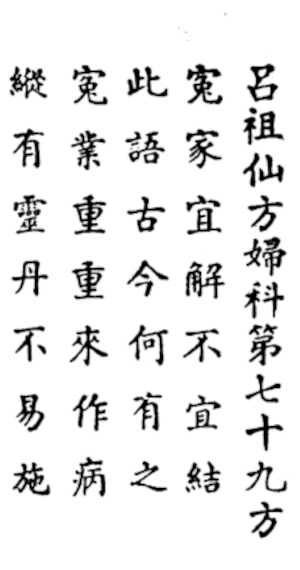 呂祖仙方婦科第七十九方
寃家宜解不宜結
此語古今何有之
寃業重重來作病
縱有靈丹不易施